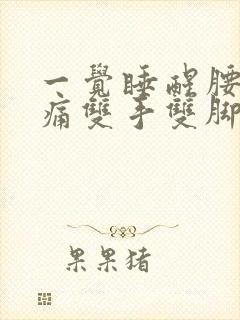 一覺睡醒腰
痛雙手雙腳
果果猪